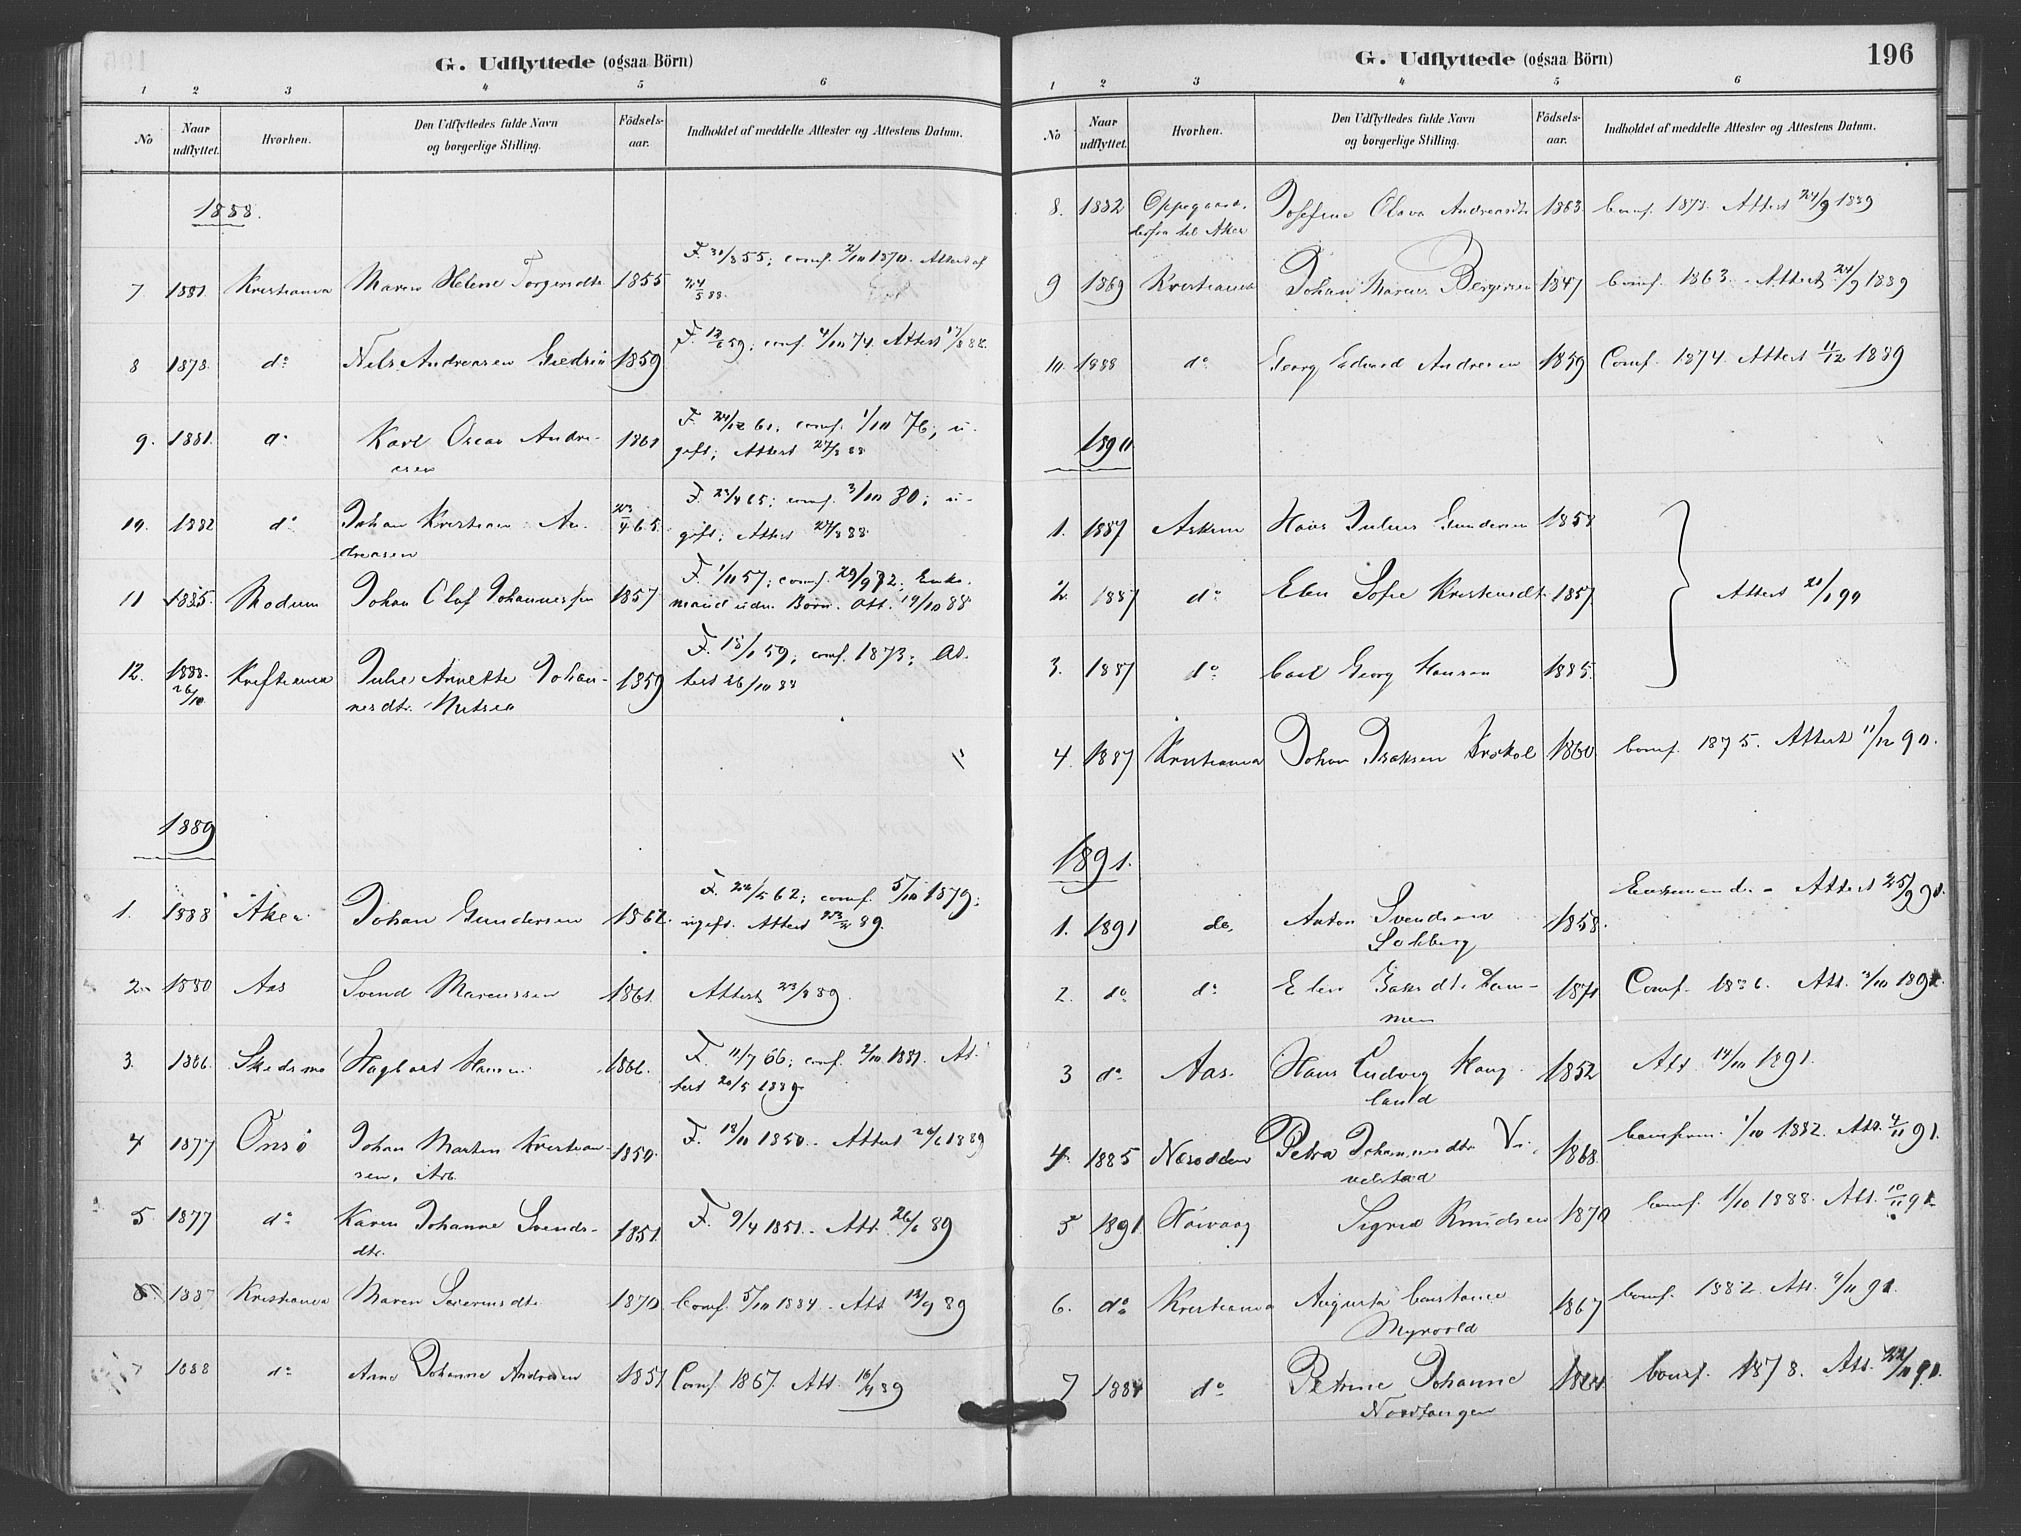 G. Udflyttede (ogsaa Börn)
1 2 3 4 5 6
No Naar udflyttet. Hvorhen. Den Udflyttedes fulde Navn og borgerlige Stilling. Födsels-aar. Indholdet af meddelte Attester og Attestens Datum.
1888.
7. 1881 Kristiania Maren Helene Torgersdtr 1855 F. 31/3 55; conf. 2/10 1870. Attest af
24/5 88.
8 1878. do Nils Andreasen 1859 F. 12/6 59; conf. 4/10 74. Attest 17/8 88.
9. 1881. do Karl Oscar Andre- 1861 F. 24/12 61; conf. 1/10 76; u-
asen gift; Attest 27/8 88
10. 1882 do Johan Kristian An- 23/4 65. F. 23/4 65; conf. 3/10 80; u-
dreasen gift; Attest 27/8 88
11 1885. Modum Johan Olaf Johannessen 1857 F. 1/11 57; conf. 29/9 72; Enke-
mand uden Børn. Att. 19/10 88
12. 1888. Kristiania Julie Annette Johan- 1859 F. 18/1 59; conf. 1873; At-
26/10 nesdtr. test 26/10 88
1889
1. 1888 Aker Johan Gundersen 1862. F. 22/5 62; conf. 5/10 1879;
ugift. Attest 89.
2. 1880 Aas Svend Marcussen 1861. Attest 23/3 89.
3. 1886. Skedsmo Hagbart Hansen 1866. F. 11/7 66; conf. 2/10 1881. At-
test 20/5 1889
4 1877 Onsö Johan Martin Kristian- 1850. F. 18/11 1850. Attest 26/6 1889
sen, Arb.
5 1877 do Karen Johanne Svends- 1851. F. 9/4 1851. Att. 26/6 89
dtr.
6. 1887 Kristiania Maren Severinsdtr 1870 Conf. 5/10 1884. Att 13/9 89
7 1888 do Anne Johanne Andersen 1851 Conf. 1867. Att. 16/9 89
G. Udflyttede (ogsaa Börn) 196
1 2 3 4 5 6
No Naar udflyttet. Hvorhen. Den Udflyttedes fulde Navn og borgerlige Stilling. Födsels-aar. Indholdet af meddelte Attester og Attestens Datum.
8. 1882 Oppegaard, Josefine Olava Andreasdtr 1863. Conf. 1878. Attest 24/9 1889
derfra til Aker
9 1869 Kristiania Johan Marius Bergersen 1847 Conf. 1863. Attest 24/9 1889
10. 1888 do Georg Edvard Andresen 1859 Conf. 1874. Attest 11/12 1889
1890
1. 1887 Askim Hans Julius Gundersen 1858
2. 1887 do Elen Sofie Kristensdtr. 1857 Attest 20/1 90
3. 1887 do Carl Georg Hansen 1885.
4. 1887 Kristiania Johan Isaksen 1860. Conf. 1875. Attest 11/12 90.
1891.
1. 1891 do. Anton Svendsen 1858. Enkemand. - Attest 25/2 91.
Solberg
2. do do Elen 1871 Conf. 1886. Att. 3/10 1891.
men
3 do Aas. Hans Ludvig Haug- 1852 Att. 14/10 1891.
land
4. 1885 Næsodden Petra Johannesdtr Vi- 1868 Confirm. 1/10 1882. Att. 4/11 91.
velstad
5 1891. Høivaag Sigrid Knudsen 1870 Conf. 1/10 1888. Att. 10/11 91.
6. do Kristiania Augusta Constance 1867 Conf. 1882. Att. 9/11 91.
Myrvold
7 1884 do Petrine Johanne 1864. Conf. 1878. Att. 22/11 91.
Nordtangen